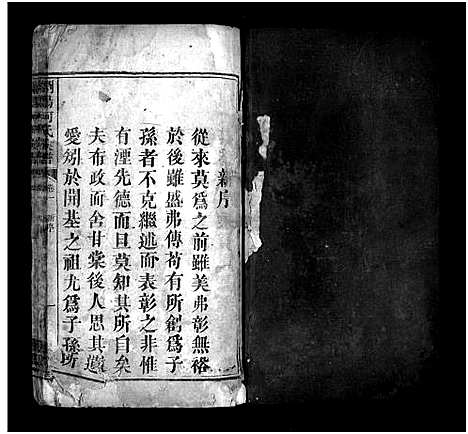 新序
從來莫爲之前雖美弗彰無裕
於後雖盛弗傳苟有所創爲子
孫者不克繼述而表彰之非惟
有湮先德而且莫知其所自矣
夫布政而舍甘棠後人思其遺
愛矧於開基之祖尤爲子孫所
氏 卷一 新序